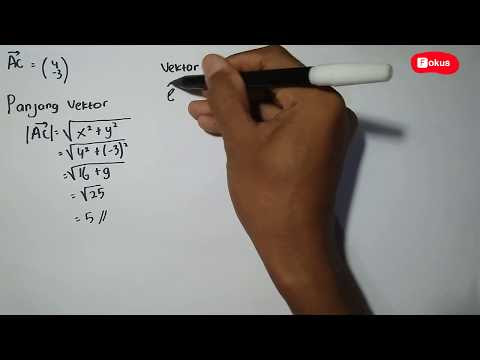 AC = (4 -3)
Panjang Vektor
|AC| = √x² + y²
= √4² + (-3)²
= √16 + 9
= √25
= 5 //
Vektor
e
Fokus